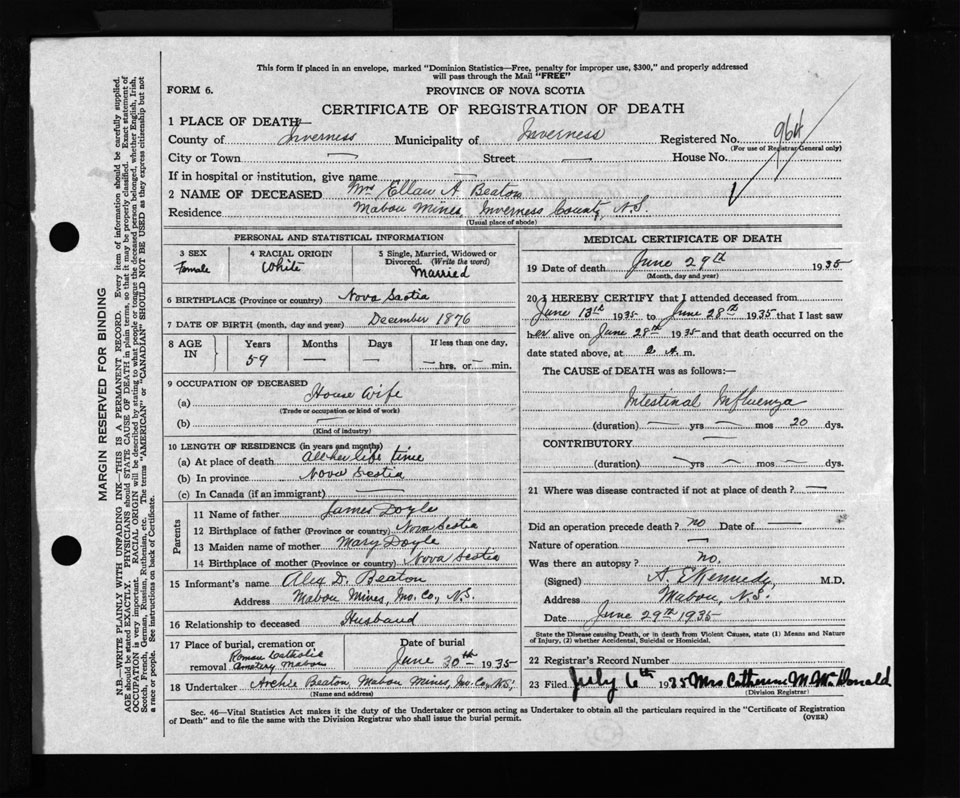 This form if placed in an envelope, marked "Dominion Statistics—Free, penalty for improper use, $300," and properly addressed
will pass through the Mail "FREE"
FORM 6.
PROVINCE OF NOVA SCOTIA
CERTIFICATE OF REGISTRATION OF DEATH
1 PLACE OF DEATH—
County of Inverness Municipality of Inverness Registered No. 964
(For use of Registrar General only)
City or Town — Street — House No.
If in hospital or institution, give name —
2 NAME OF DECEASED Mrs Ellan A Beaton
Residence Mabou Mines, Inverness County N.S.
(Usual place of abode)
PERSONAL AND STATISTICAL INFORMATION
3 SEX Female
4 RACIAL ORIGIN White
5 Single, Married, Widowed or Divorced. (Write the word) Married
6 BIRTHPLACE (Province or country) Nova Scotia
7 DATE OF BIRTH (month, day and year) December 1876
8 AGE IN Years 59 Months — Days — If less than one day, — hrs. or — min.
9 OCCUPATION OF DECEASED
(a) House Wife
(Trade or occupation or kind of work)
(b)
(Kind of industry)
10 LENGTH OF RESIDENCE (in years and months)
(a) At place of death All her life time
(b) In province Nova Scotia
(c) In Canada (if an immigrant) —
Parents
11 Name of father James Doyle
12 Birthplace of father (Province or country) Nova Scotia
13 Maiden name of mother Mary Doyle
14 Birthplace of mother (Province or country) Nova Scotia
15 Informant's name Alex D. Beaton
Address Mabou Mines, Inv. Co, N.S.
16 Relationship to deceased Husband
17 Place of burial, cremation or removal Roman Catholic Cemetery Mabou
Date of burial June 30th 1935
18 Undertaker Archie Beaton, Mabou Mines, Inv. Co, N.S.
(Name and address)
MEDICAL CERTIFICATE OF DEATH
19 Date of death June 29th 1935
(Month, day and year)
20 I HEREBY CERTIFY that I attended deceased from
June 13th 1935 to June 28th 1935 that I last saw
her alive on June 28th 1935 and that death occurred on
date stated above, at 2 A. m.
The CAUSE of DEATH was as follows:—
Intestinal Influenza
(duration) — yrs — mos 20 dys.
CONTRIBUTORY —
(duration) — yrs — mos — dys.
21 Where was disease contracted if not at place of death? —
Did an operation precede death? no Date of —
Nature of operation —
Was there an autopsy? no.
(Signed) A. E Kennedy, M.D.
Address Mabou, N.S.
Date June 29th 1935
State the Disease causing Death, or in death from Violent Causes, state (1) Means and Nature
of Injury, (2) whether Accidental, Suicidal or Homicidal.
22 Registrar's Record Number
23 Filed July 6th 1935 Mrs Catherine M. McDonald
(Division Registrar)
Sec. 46—Vital Statistics Act makes it the duty of the Undertaker or person acting as Undertaker to obtain all the particulars required in the "Certificate of Registration
of Death" and to file the same with the Division Registrar who shall issue the burial permit.
(OVER)
MARGIN RESERVED FOR BINDING
N.B.—WRITE PLAINLY WITH UNFADING INK—THIS IS A PERMANENT RECORD. Every item of information should be carefully supplied.
AGE should be stated EXACTLY. PHYSICIANS should STATE CAUSE OF DEATH in plain terms, so that it may be properly classified. Exact statement of
OCCUPATION is very important. RACIAL ORIGIN will be described by stating to what people or tongue the deceased person belonged, whether English, Irish,
Scotch, French, German, Russian, Ruthenian, etc. The terms "AMERICAN" or "CANADIAN" SHOULD NOT BE USED as they express citizenship but not
a race or people. See instructions on back of Certificate.